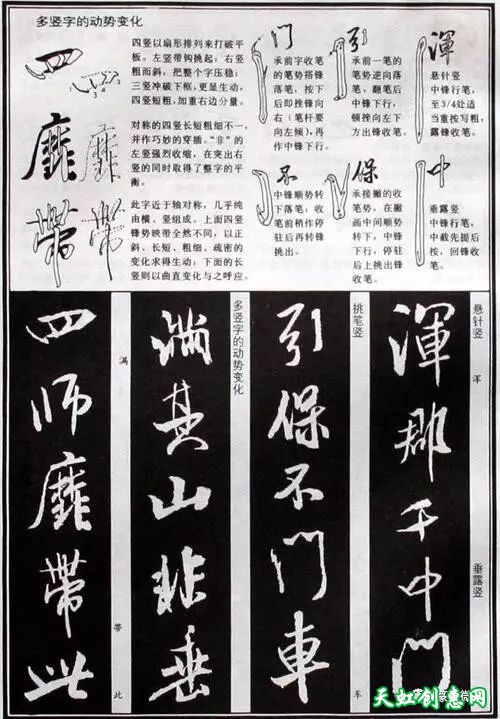 多竖字的动势变化
四竖以扇形排列来打破平
板。左竖带钩挑起；右竖
粗而斜，把整个字压稳；
三竖冲破下框，更显生动，
四竖短粗，加重右边分量。
对称的四竖长短粗细不一，
并作巧妙的穿插。“非”的
左竖强烈收缩，在突出右
竖的同时取得了整字的平
衡。
此字近于轴对称，几乎纯
由横、竖组成。上面四竖
锋势映带全然不同，以正
斜、长短、粗细、疏密的
变化求得生动；下面的长
竖则以曲直变化与之呼应。
四
靡
带
门
承前字收笔
的笔势搭锋
落笔，按下
后即挫锋向
右（笔杆要
向左倾），再
作中锋下行。
引
承前一笔的
笔势逆向落
笔，翻笔后
中锋下行，
顿挫向左下
方出锋收笔。
渾
悬针竖
中锋行笔，
至3/4处适
当重按写粗，
露锋收笔。
不
中锋顺势转
下落笔；收
笔前稍作停
驻后再转锋
挑出。
保
承接撇的收
笔势，在撇
画中间顺势
转下，中锋
下行，停驻
后上挑出锋
收笔。
中
垂露竖
中锋行笔，
中截先提后
按，回锋收
笔。
悬针竖
浑
渾
那
千
中
门
垂露竖
挑笔竖
引
保
不
门
車
车
多竖字的动势变化
满
满
其
山
非
垂
四
师
靡
帶
此
带
此
天虹创意网